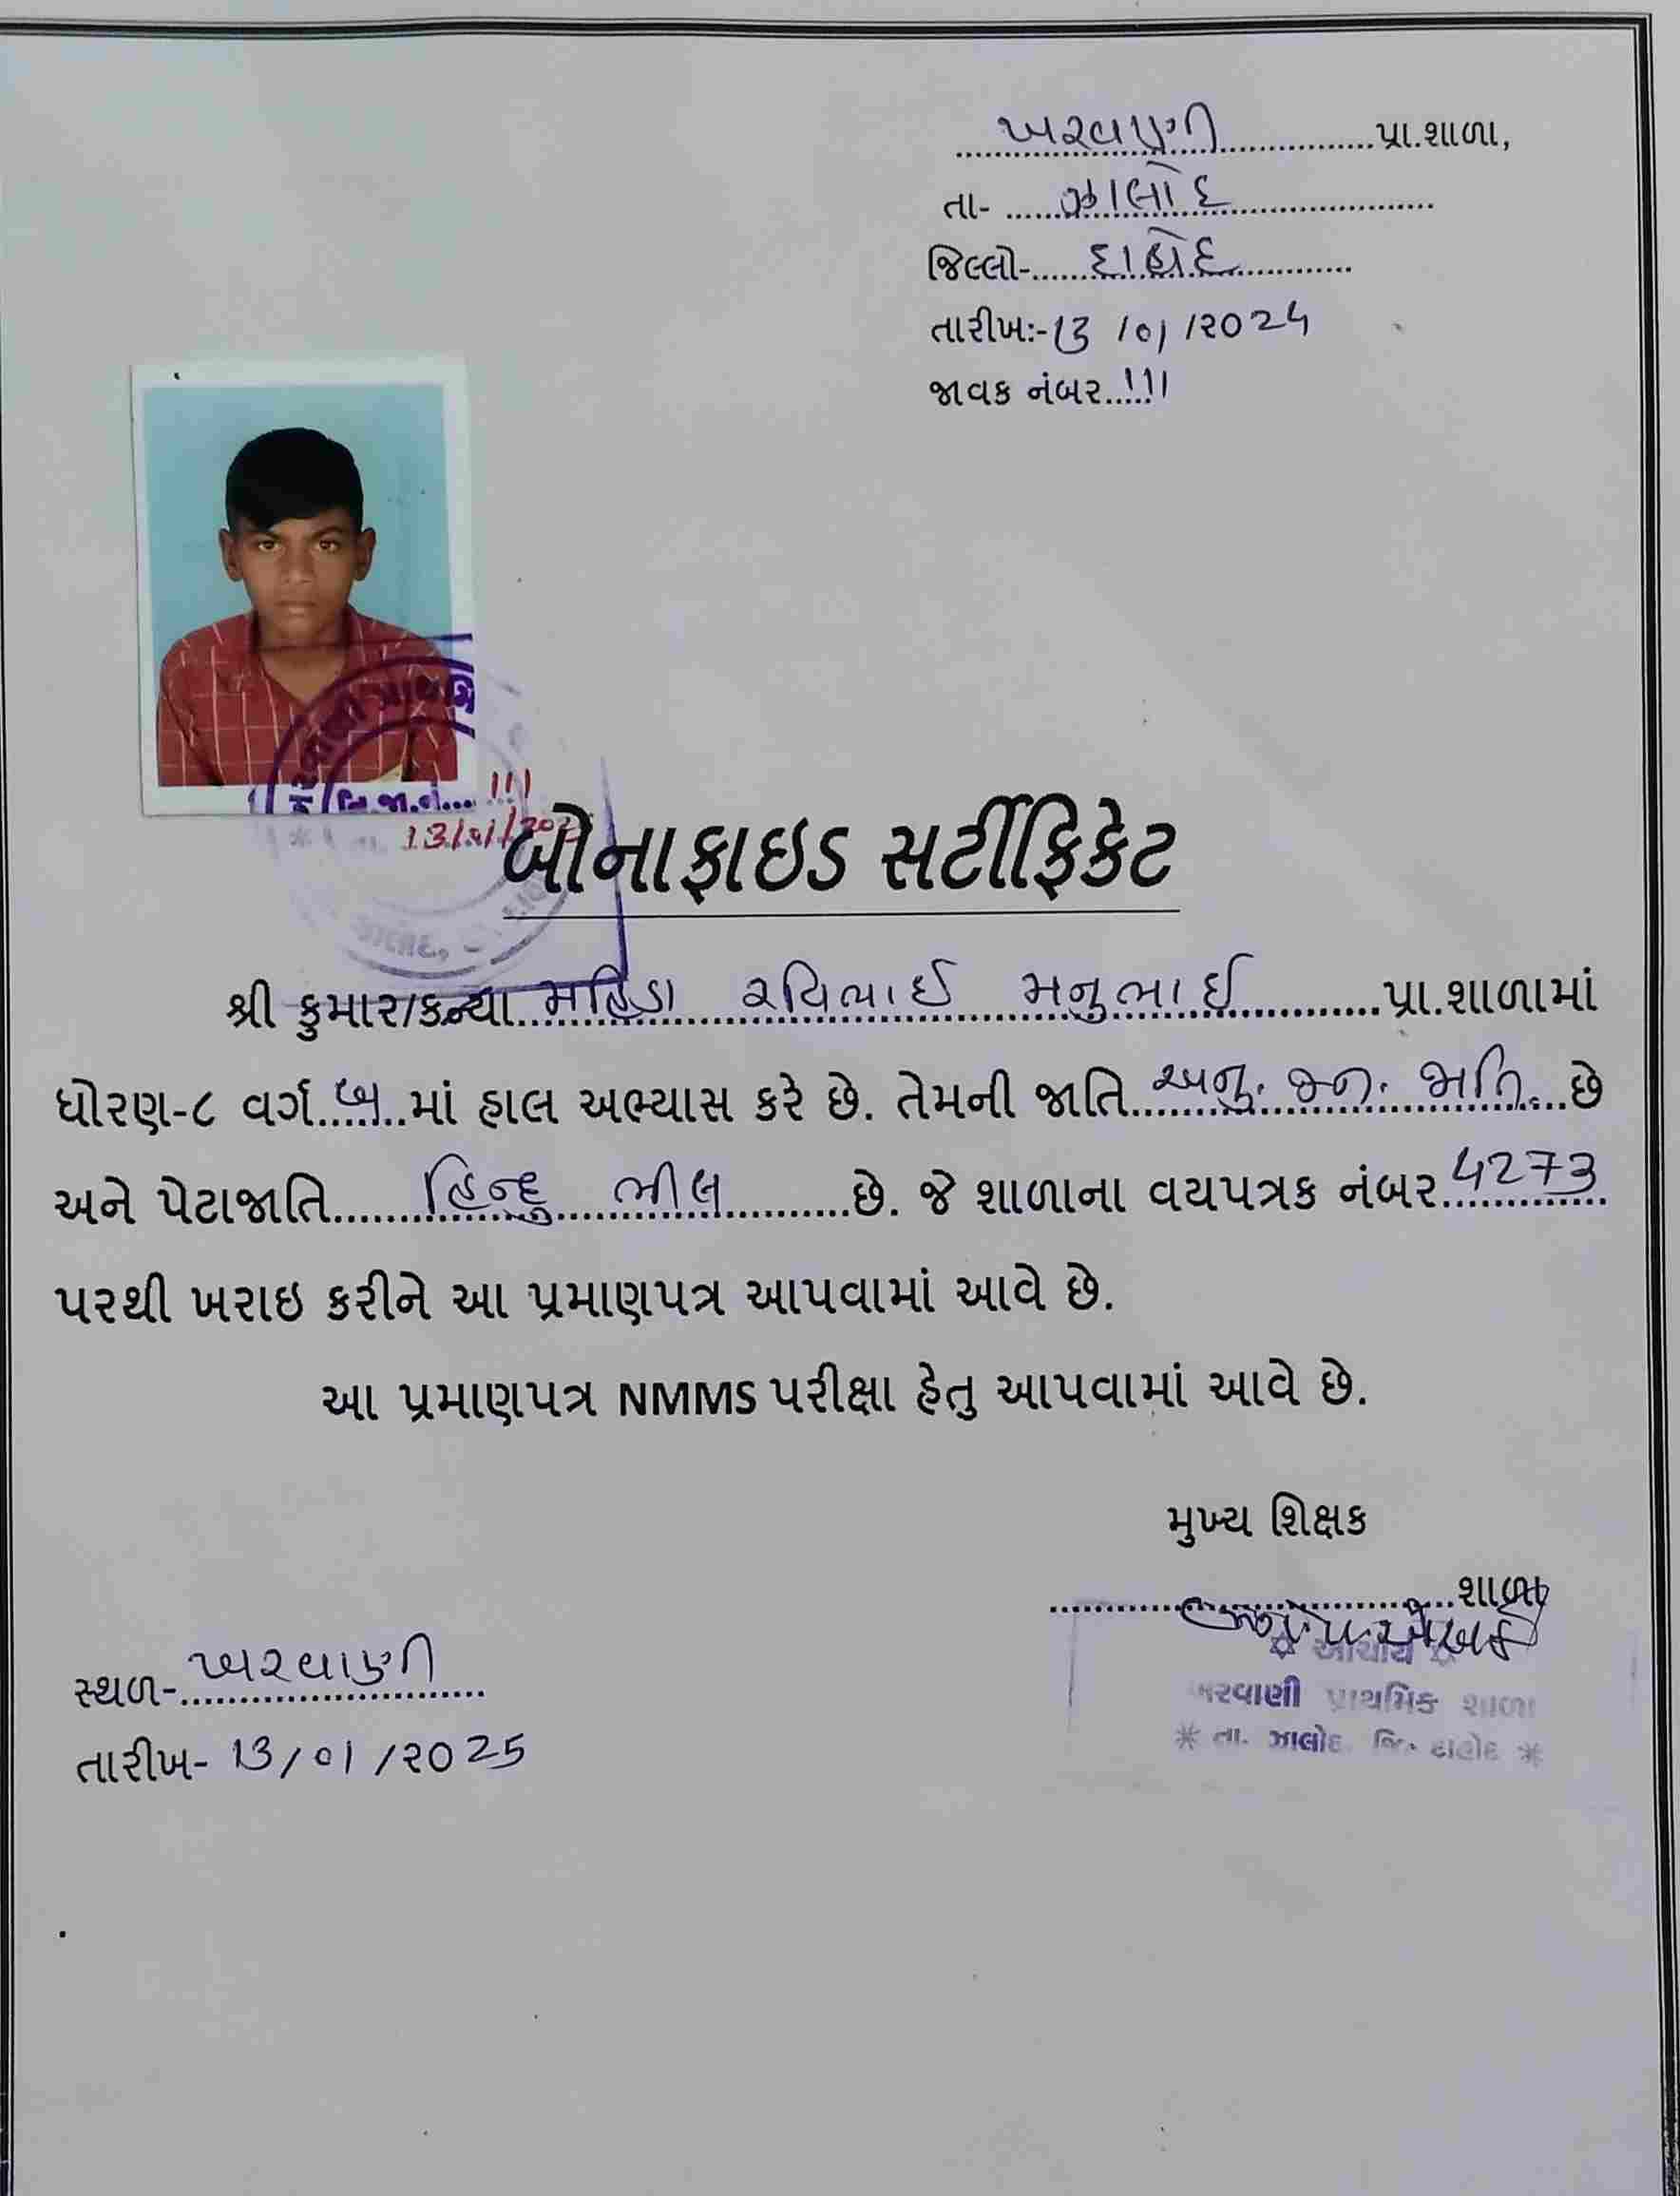 ખરવાણી પ્રા.શાળા,
તા- ઝાલોદ
જિલ્લો- દાહોદ
તારીખ:-13 /01 /૨૦૨૫
જાવક નંબર.....111
જિ.જા.નં.... 111
13/01/202
બોનાફાઇડ સર્ટીફિકેટ
શ્રી કુમાર/કન્યા મહિડા રવિભાઈ મનુભાઈ પ્રા.શાળામાં
ધોરણ-૮ વર્ગ બ માં હાલ અભ્યાસ કરે છે. તેમની જાતિ અનુ. જન. જાતિ. છે
અને પેટાજાતિ હિન્દુ ભીલ છે. જે શાળાના વયપત્રક નંબર 4273
પરથી ખરાઇ કરીને આ પ્રમાણપત્ર આપવામાં આવે છે.
આ પ્રમાણપત્ર NMMS પરીક્ષા હેતુ આપવામાં આવે છે.
મુખ્ય શિક્ષક
શાળા
આચાર્ય
ખરવાણી પ્રાથમિક શાળા
* તા. ઝાલોદ જિ. દાહોદ *
સ્થળ- ખરવાણી
તારીખ- 13/01/૨025